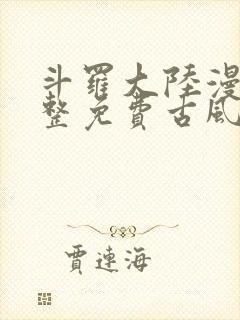 斗羅大陸漫
整免費古風
賈連海